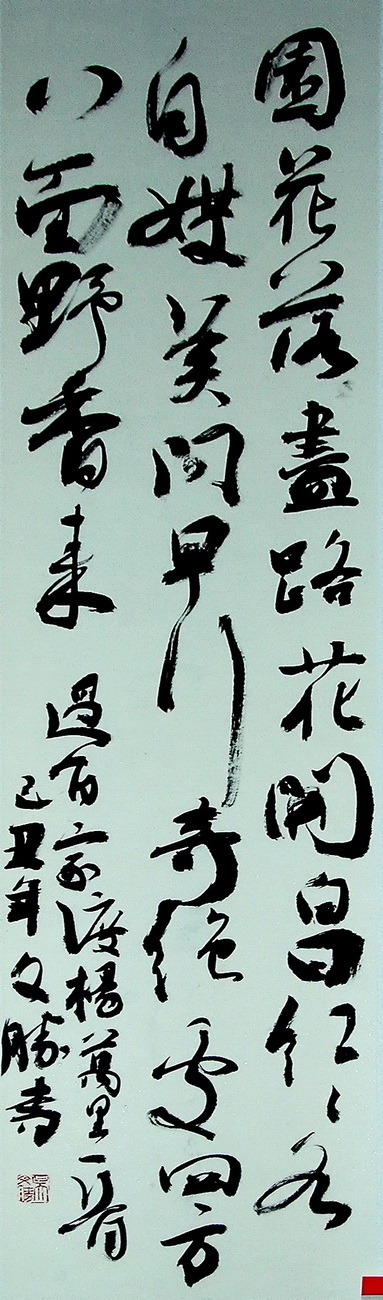 園花落盡路花開白白紅々各
自媒莫問早行奇絕處四方
八面野香来
過百家渡楊萬里一首
己丑年文勝書